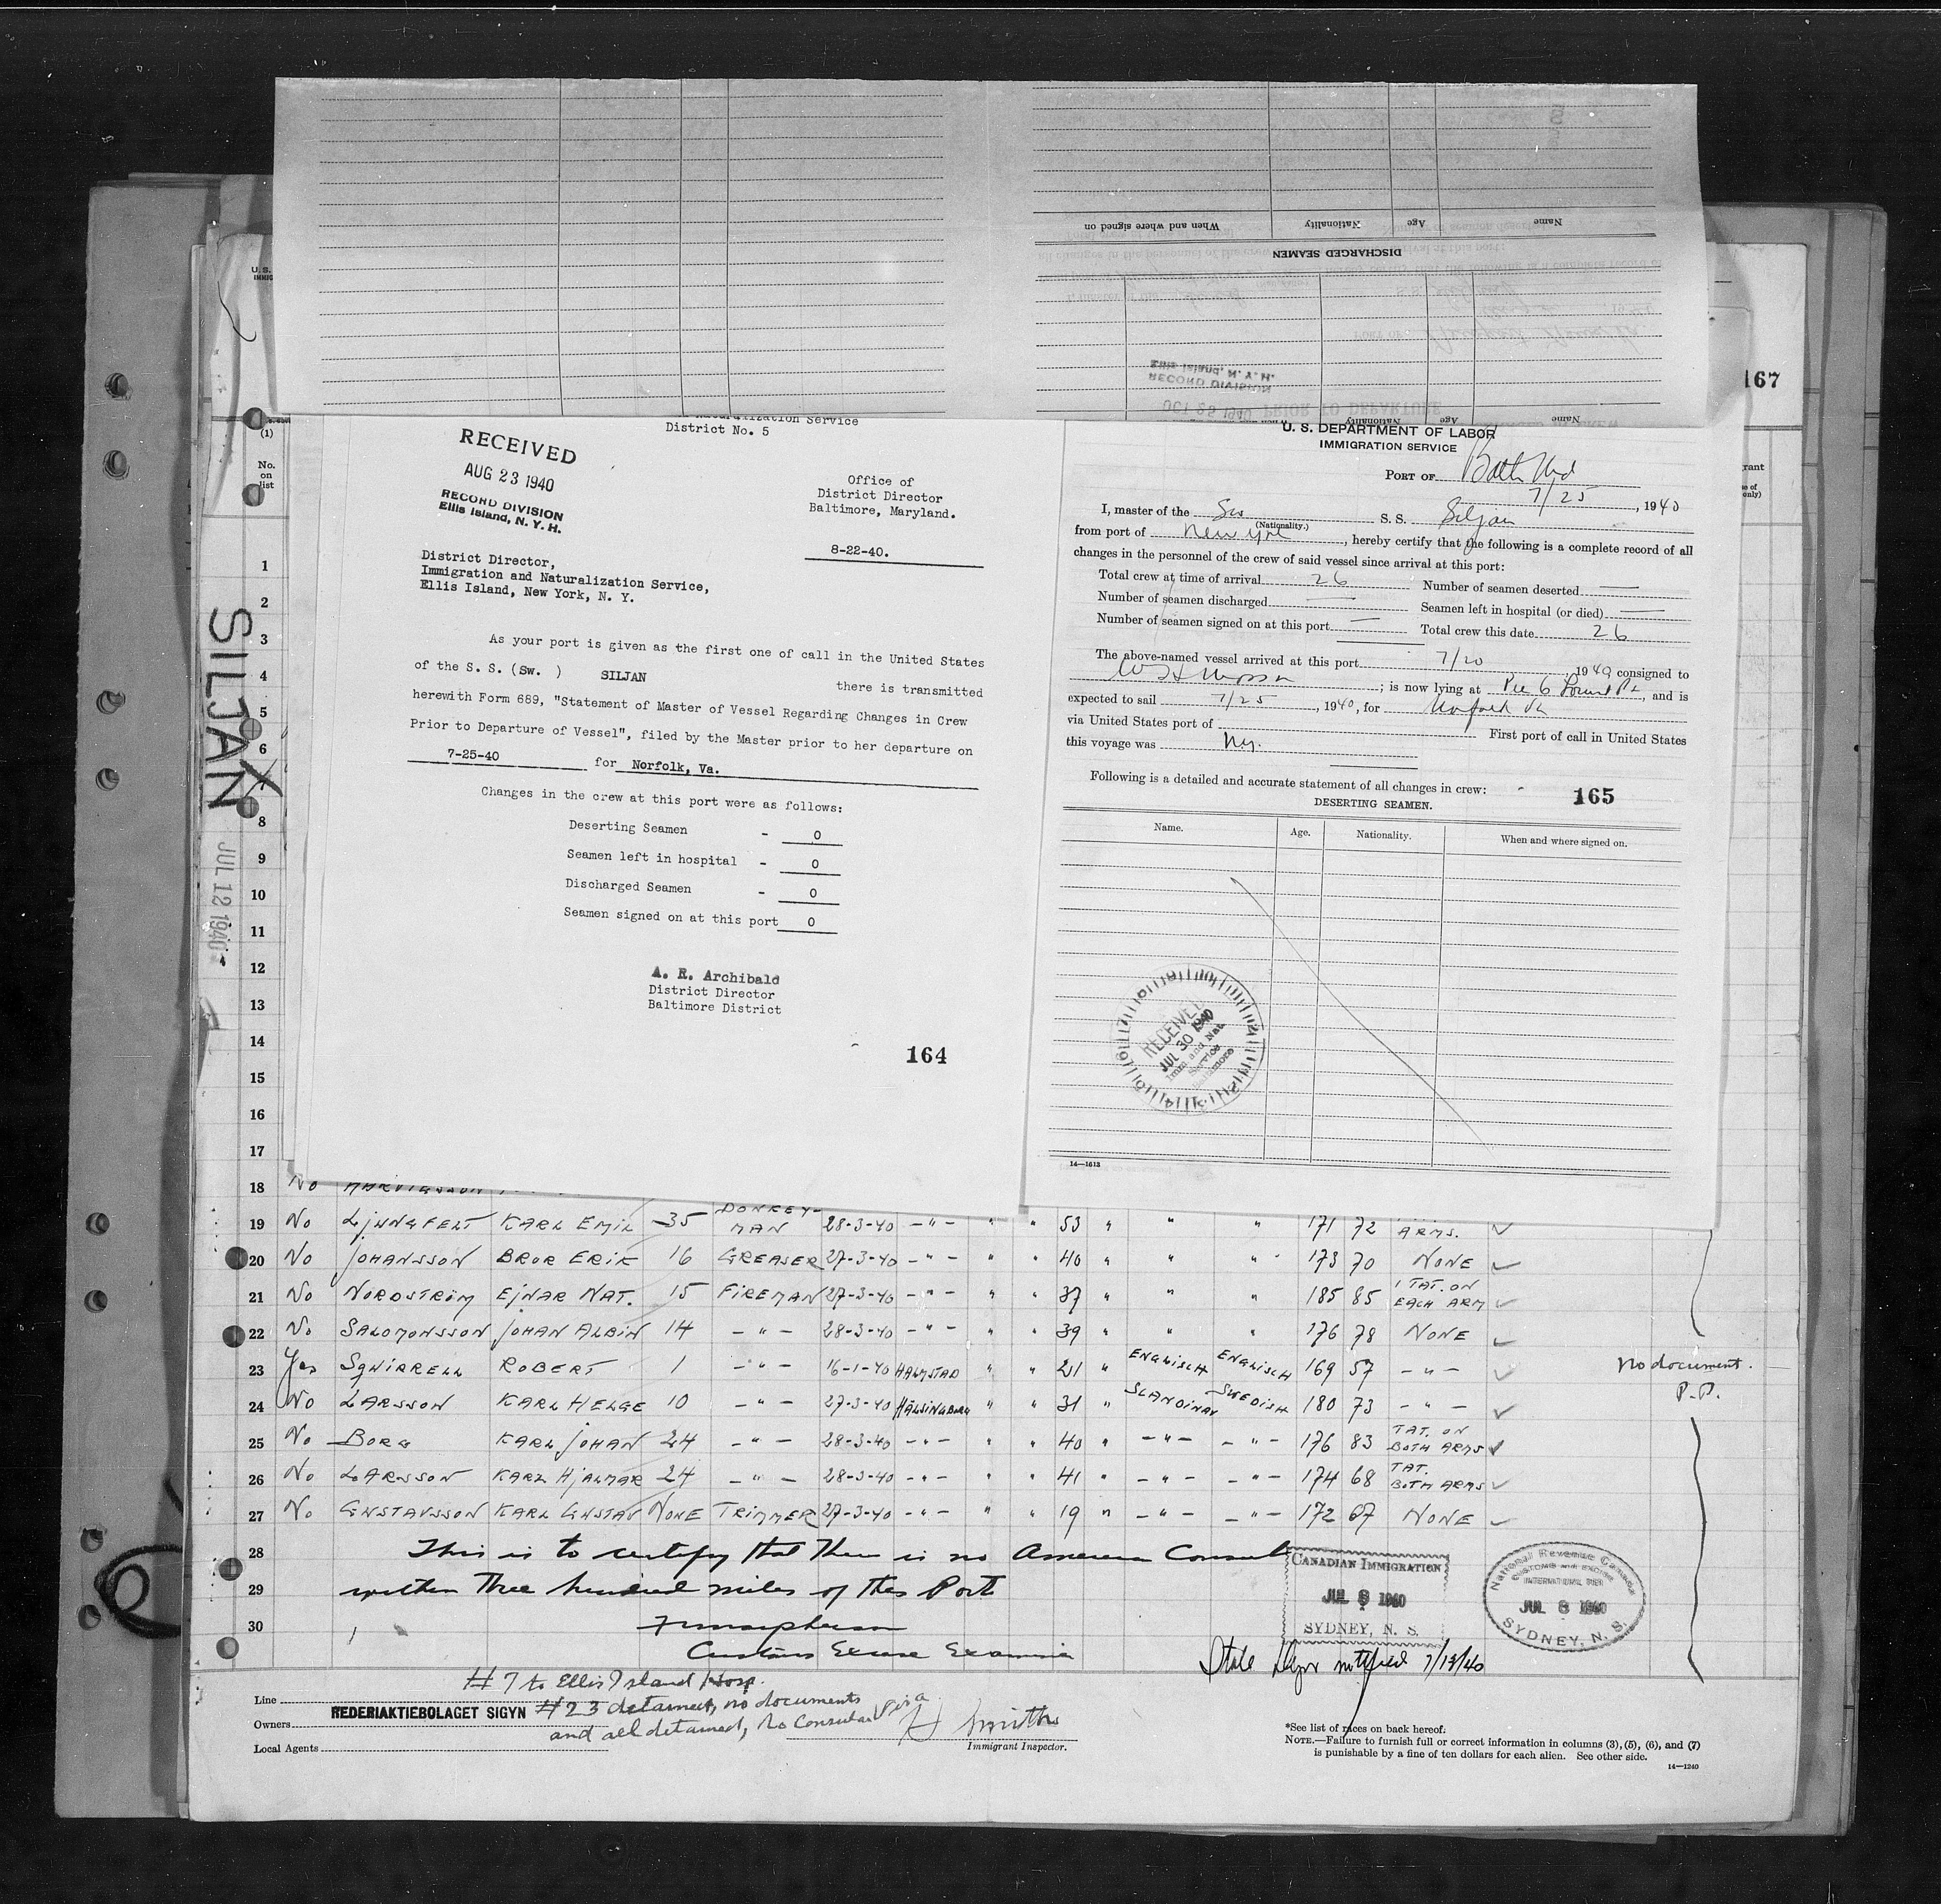 Name
Age
Nationality
When and where signed on
DISCHARGED SEAMEN
RECORD DIVISION
Ellis Island, N. Y. H.
OCT 25 1940 PRIOR TO DEPARTURE
Name
Age
Nationality
167
U. S.
(1)
No. on list
SILJAN
JUL 12 1940
Naturalization Service
District No. 5
RECEIVED
AUG 23 1940
RECORD DIVISION
Ellis Island, N. Y. H.
Office of
District Director
Baltimore, Maryland.
8-22-40.
District Director,
Immigration and Naturalization Service,
Ellis Island, New York, N. Y.
As your port is given as the first one of call in the United States
of the S. S. (Sw. ) SILJAN there is transmitted
herewith Form 689, "Statement of Master of Vessel Regarding Changes in Crew
Prior to Departure of Vessel", filed by the Master prior to her departure on
7-25-40 for Norfolk, Va.
Changes in the crew at this port were as follows:
Deserting Seamen - 0
Seamen left in hospital - 0
Discharged Seamen - 0
Seamen signed on at this port 0
A. R. Archibald
District Director
Baltimore District
164
U. S. DEPARTMENT OF LABOR
IMMIGRATION SERVICE
PORT OF Balto Md
7/25, 1940
I, master of the Sw S. S. Siljan
(Nationality.)
from port of New York, hereby certify that the following is a complete record of all
changes in the personnel of the crew of said vessel since arrival at this port:
Total crew at time of arrival 26 Number of seamen deserted —
Number of seamen discharged — Seamen left in hospital (or died) —
Number of seamen signed on at this port — Total crew this date 26
The above-named vessel arrived at this port 7/20, 1940, consigned to
; is now lying at Pier 6, and is
expected to sail 7/25, 1940, for Norfolk Va
via United States port of First port of call in United States
this voyage was N.Y.
Following is a detailed and accurate statement of all changes in crew:
165
DESERTING SEAMEN.
Name. Age. Nationality. When and where signed on.
RECEIVED
JUL 30 1940
Imm and Nat.
Service
Baltimore
14—1613
1
2
3
4
5
6
7
8
9
10
11
12
13
14
15
16
17
18 No
19 No LJUNGFELT KARL EMIL 35 DONKEY-MAN 28-3-40 -"- " " 53 " " " 171 72 ARMS. ✓
20 No JOHANSSON BROR ERIK 16 GREASER 27-3-40 -"- " " 40 " " " 173 70 NONE ✓
21 No NORDSTRÖM EJNAR NAT. 15 FIREMAN 27-3-40 -"- " " 37 " " " 185 85 1 TAT. ON EACH ARM ✓
22 No SALOMONSSON JOHAN ALBIN 14 -"- 28-3-40 -"- " " 39 " " " 176 78 NONE ✓
23 Yes SQUIRRELL ROBERT 1 -"- 16-1-40 HALMSTAD " " 21 " ENGLISCH ENGLISCH 169 57 -"- ✓ No document.
24 No LARSSON KARL HELGE 10 -"- 27-3-40 HÄLSINGBORG " " 31 " SCANDINAV SWEDISH 180 73 -"- ✓ P.P.
25 No BORG KARL JOHAN 24 -"- 28-3-40 -"- " " 40 " -"- -"- 176 83 TAT. ON BOTH ARMS ✓
26 No LARSSON KARL HJALMAR 24 -"- 28-3-40 -"- " " 41 " -"- -"- 174 68 TAT. BOTH ARMS ✓
27 No GUSTAVSSON KARL GUSTAV NONE TRIMMER 27-3-40 -"- " " 19 " -"- -"- 172 67 NONE ✓
28 This is to certify that there is no American Consul
29 within three hundred miles of this Port
30
Customs Excise Examiner
CANADIAN IMMIGRATION
JUL 8 1940
SYDNEY, N. S.
National Revenue Canada
CUSTOMS AND EXCISE
INTERNATIONAL PIER
JUL 8 1940
SYDNEY, N. S.
State Dept notified 7/13/40
#7 to Ellis Island Hosp.
Line
#23 detained, no documents
Owners REDERIAKTIEBOLAGET SIGYN
and all detained, no Consular visa
Smith
Local Agents
Immigrant Inspector.
*See list of races on back hereof.
NOTE.—Failure to furnish full or correct information in columns (3), (5), (6), and (7)
is punishable by a fine of ten dollars for each alien. See other side.
14—1240